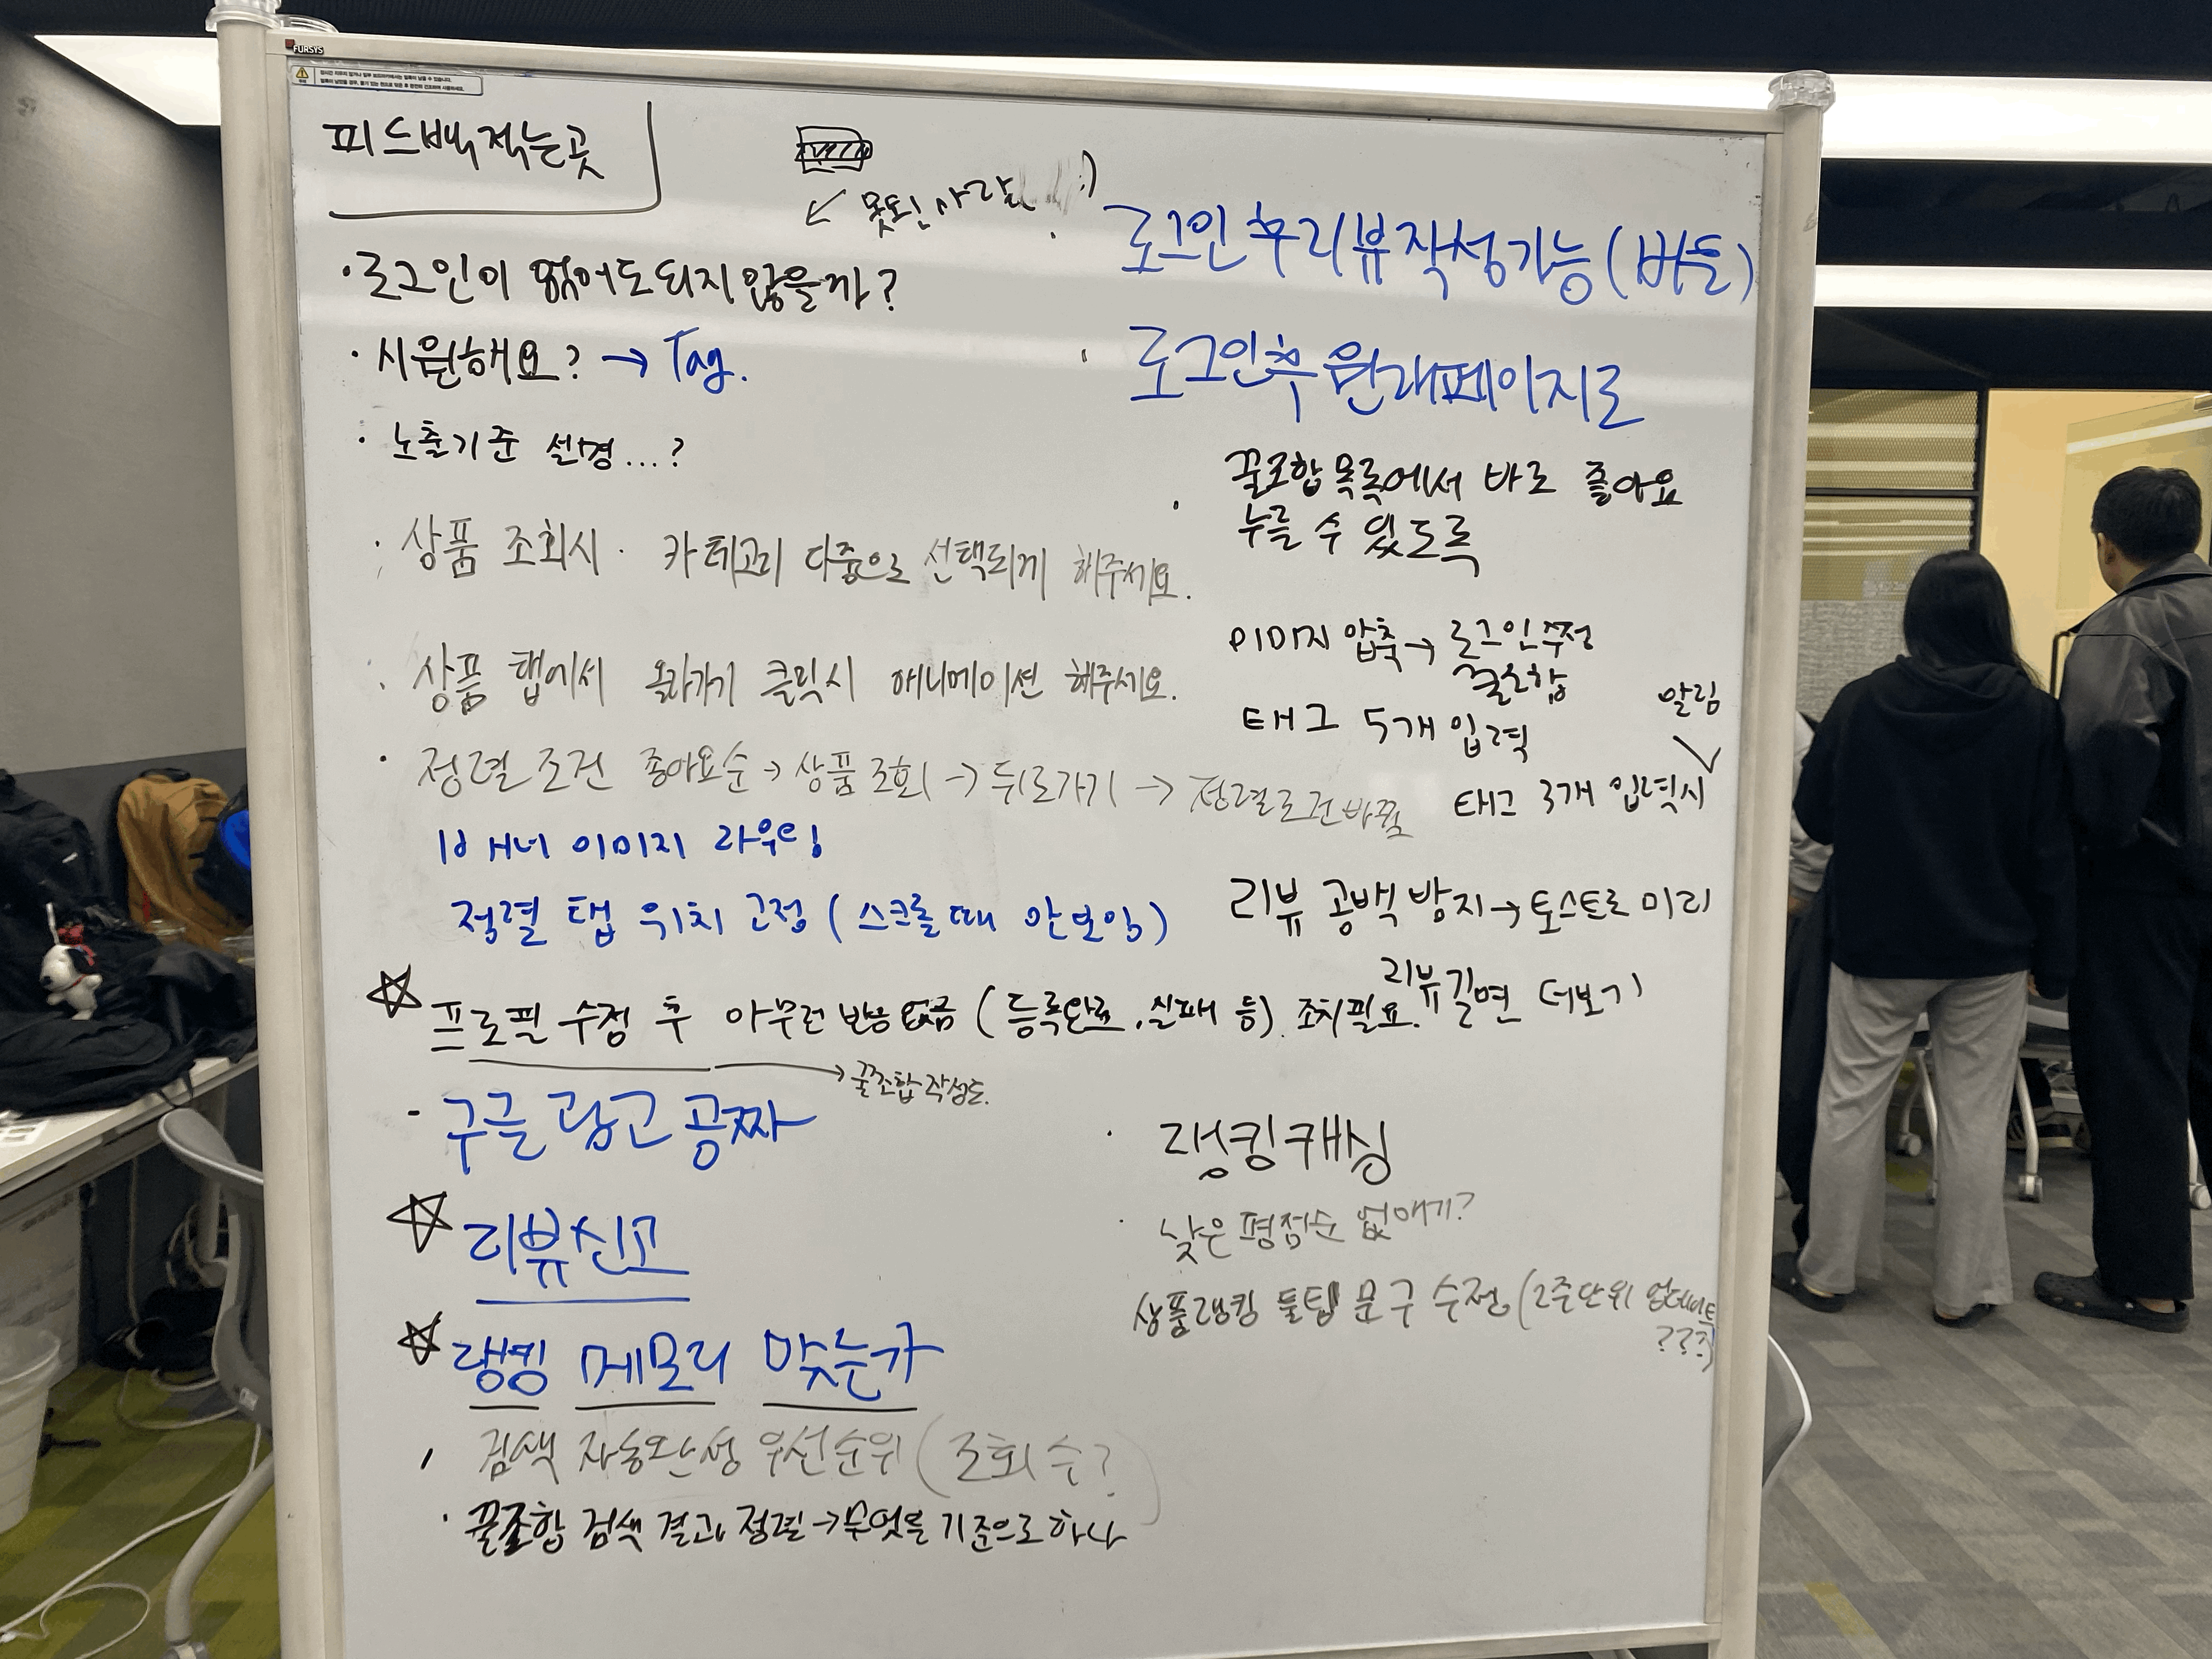 FURSYS
피드백 적는 곳
못된 사람 :)
· 로그인이 없어도 되지 않을까?
· 시원해요? → Tag.
· 노출기준 설명...?
· 상품 조회시 카테고리 다중으로 선택되게 해주세요.
· 상품 탭에서 올라가기 클릭시 애니메이션 해주세요.
· 정렬 조건 좋아요순 → 상품 조회 → 뒤로가기 → 정렬조건 바뀜
배너 이미지 라우팅
정렬 탭 위치 고정 (스크롤 때 안보임)
☆ 프로필 수정 후 아무런 반응 없음 (등록완료, 실패 등). 조치필요.
→ 꿀조합 작성도.
- 구글 광고 공짜
☆ 리뷰 신고
☆ 랭킹 메모리 맞는가
· 검색 자동완성 우선순위 (조회수?)
· 꿀조합 검색 결과 정렬 → 무엇을 기준으로 하나
· 로그인 후 리뷰 작성 가능 (버튼)
· 로그인 후 원래 페이지로
· 꿀조합 목록에서 바로 좋아요
누를 수 있도록
이미지 압축 → 로그인 수정
꿀조합
태그 5개 입력
알림
태그 3개 입력시
리뷰 공백 방지 → 토스트로 미리
리뷰 길면 더보기
· 랭킹 캐싱
· 낮은 평점순 없애기?
상품랭킹 툴팁 문구 수정 (2주단위 업데이트